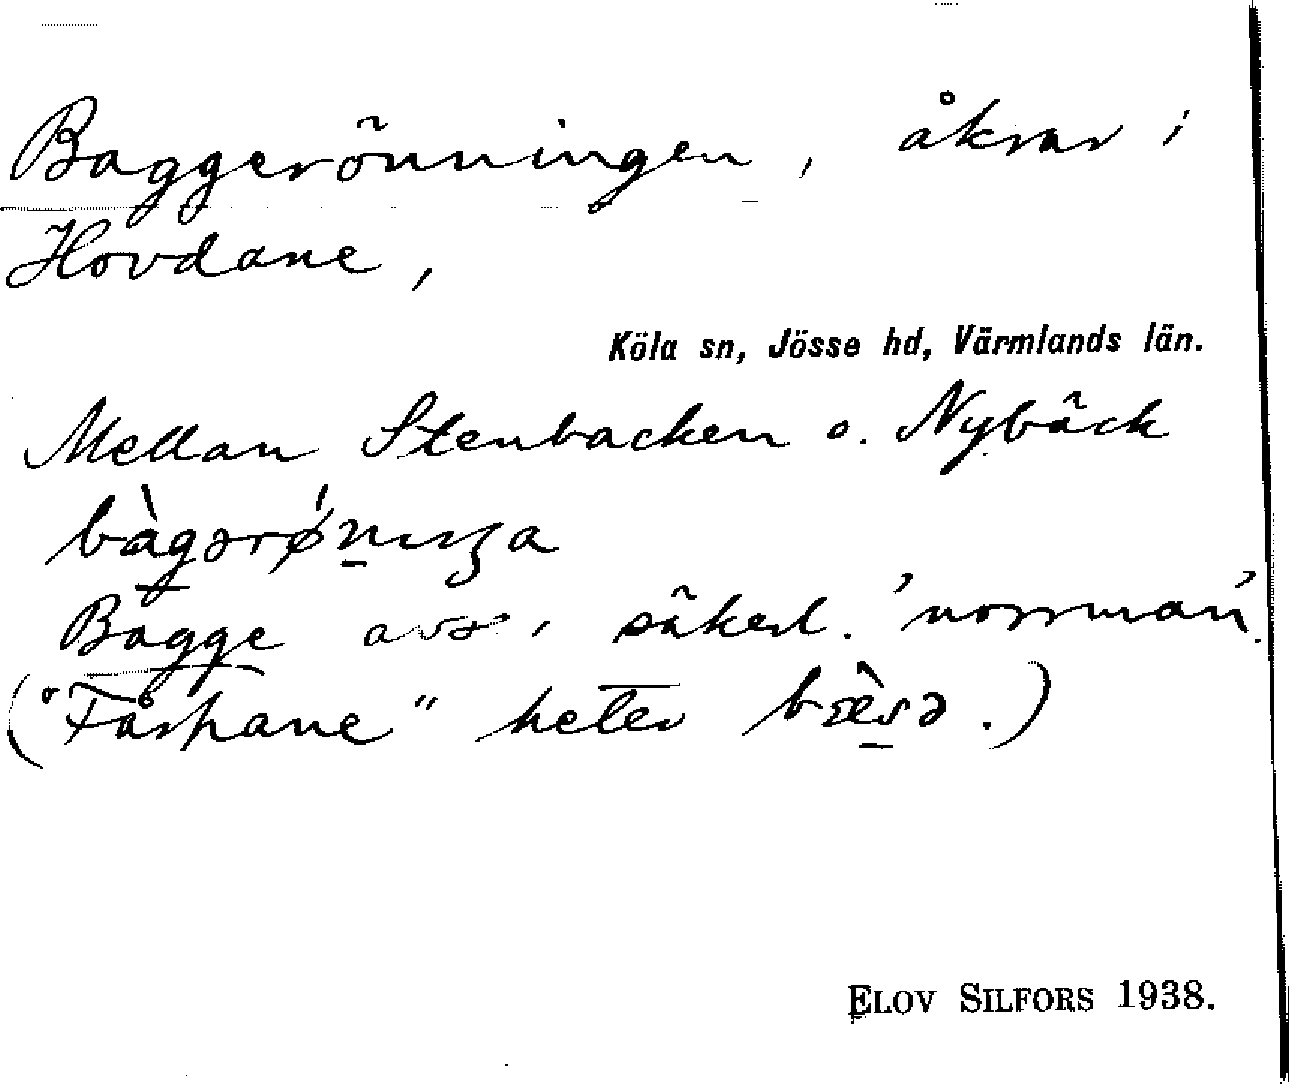 Baggerönningen, åkrar i
Hovdane,
Köla sn, Jösse hd, Värmlands län.
Mellan Stenbacken o. Nybäck
bàgərǿnıŋa
Bagge avs. säkerl. 'norrman'.
("Fårhane" heter bæ̀sə.)
ELOV SILFORS 1938.